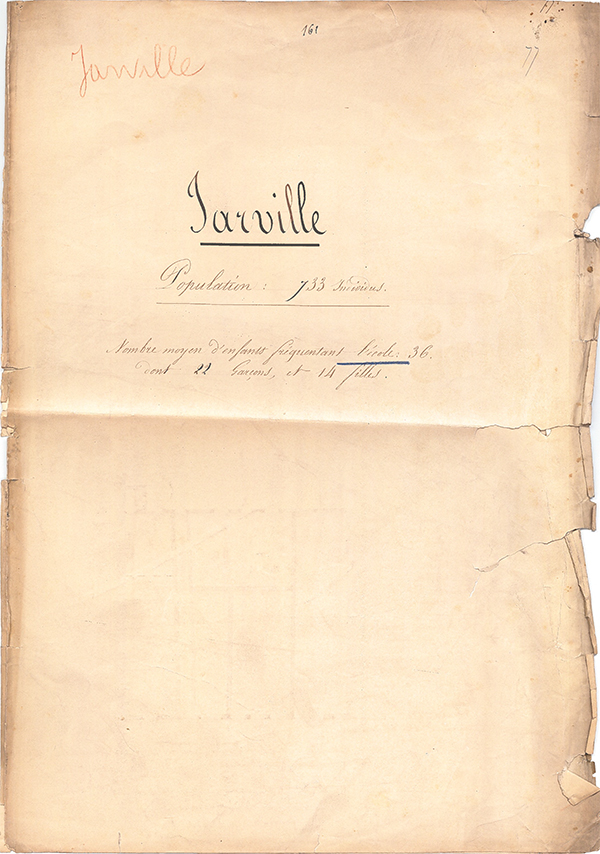 161
77
Jarville
Jarville
Population : 733 Individus.
Nombre moyen d'enfants fréquentant l'école: 36.
dont 22 Garçons, et 14 filles.